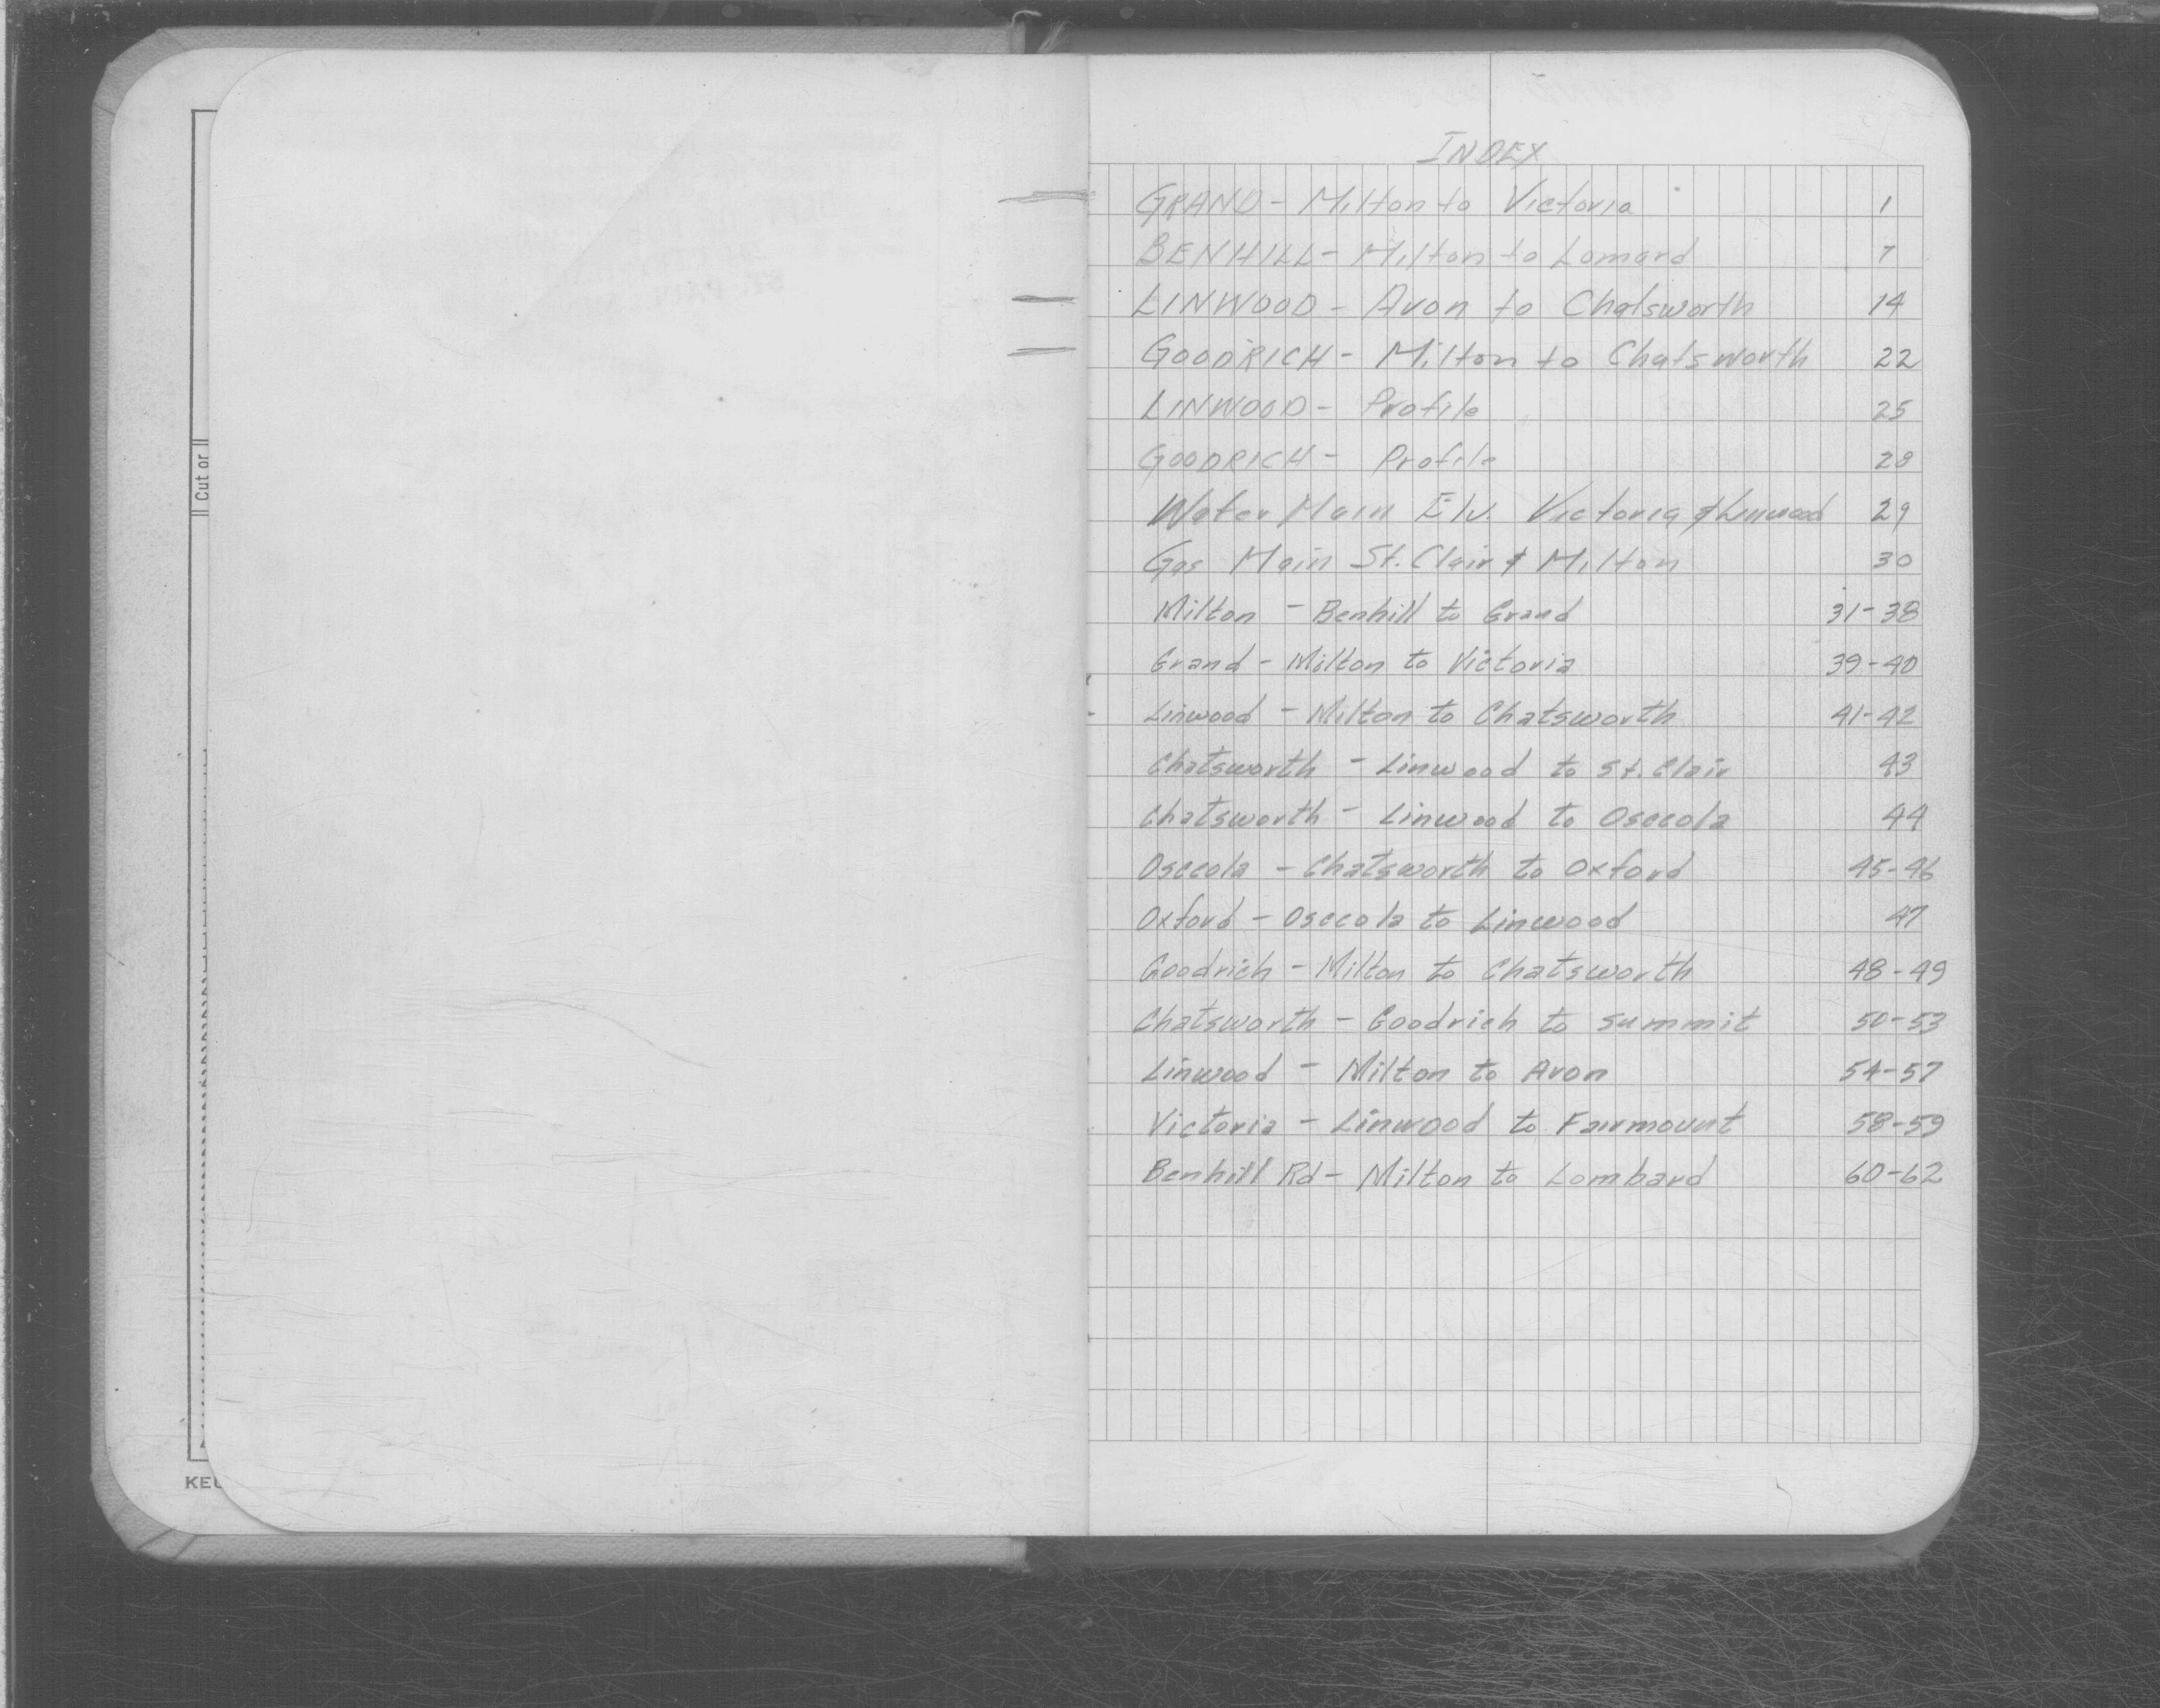 Cut or
KEU
INDEX
GRAND - Milton to Victoria 1
BENHILL - Milton to Lomard 7
LINWOOD - Avon to Chatsworth 14
GOODRICH - Milton to Chatsworth 22
LINWOOD - Profile 25
GOODRICH - Profile 28
Water Main Elv. Victoria & Linwood 29
Gas Main St. Clair & Milton 30
Milton - Benhill to Grand 31-38
Grand - Milton to Victoria 39-40
Linwood - Milton to Chatsworth 41-42
Chatsworth - Linwood to St. Clair 43
Chatsworth - Linwood to Osceola 44
Osceola - Chatsworth to Oxford 45-46
Oxford - Osceola to Linwood 47
Goodrich - Milton to Chatsworth 48-49
Chatsworth - Goodrich to Summit 50-53
Linwood - Milton to Avon 54-57
Victoria - Linwood to Fairmount 58-59
Benhill Rd - Milton to Lombard 60-62